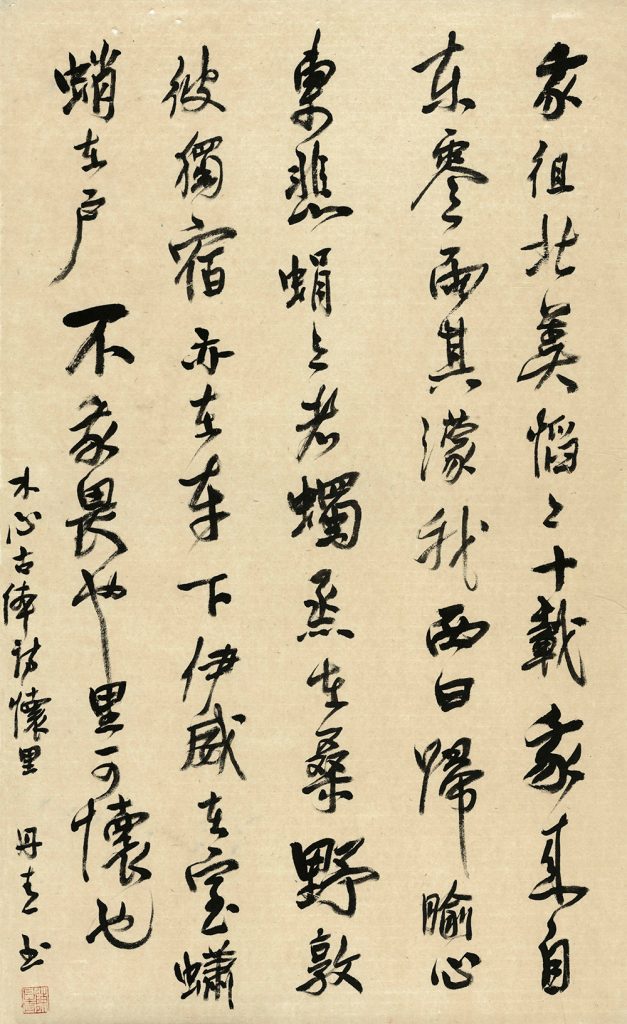 我徂北美慆々十載我來自
東零雨其濛我西曰歸心
悲蜎々者蠋烝在桑野敦
彼獨宿亦在車下伊威在室蠨
蛸在戶不我畏也里可懷也
木心古体詩懷里 丹青书